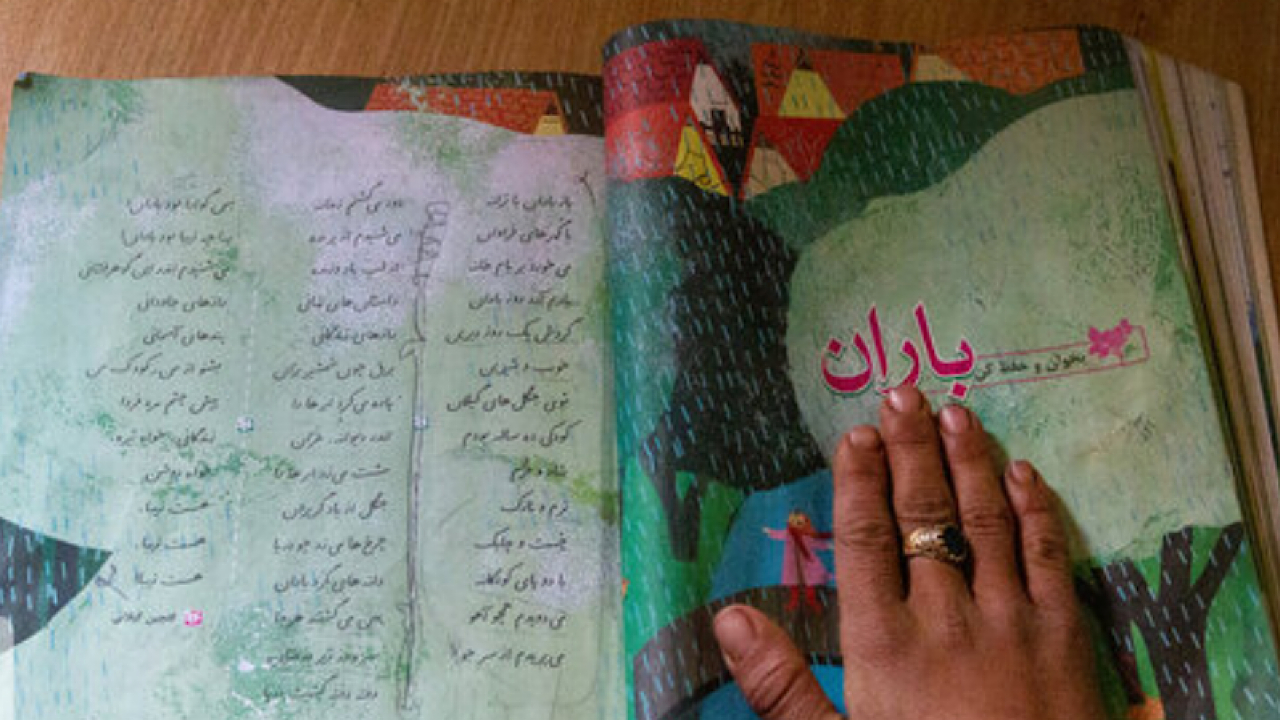 بخوان و حفظ کن
باران
باز باران با ترانه
با گهرهای فراوان
می خورد بر بام خانه
یادم آرد روز باران
گردش یک روز دیرین
خوب و شیرین
توی جنگل های گیلان
کودکی ده ساله بودم
شاد و خرم
نرم و نازک
چست و چابک
با دو پای کودکانه
می دویدم همچو آهو
می پریدم از سر جو
دور می گشتم ز خانه
می شنیدم از پرنده
از لب باد وزنده
داستان های نهانی
رازهای زندگانی
برق چون شمشیر بران
پاره می کرد ابرها را
تندر دیوانه، غران
مشت می زد ابرها را
جنگل از باد گریزان
چرخ ها می زد چو دریا
دانه های گرد باران
پهن می گشتند هر جا
سبزه در زیر درختان
رفته رفته گشت دریا
بس گوارا بود باران!
به! چه زیبا بود باران!
می شنیدم اندر این گوهرفشانی
رازهای جاودانی
پندهای آسمانی
بشنو از من، کودک من
پیش چشم مرد فردا
زندگانی، خواه تیره،
خواه روشن
هست زیبا،
هست زیبا،
هست زیبا!
گلچین گیلانی